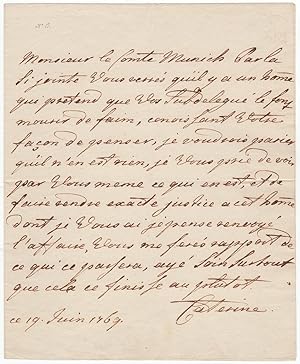 Monsieur le Comte Munich Par la
Si jointe Vous verrés qu'il y a un home
qui pretend que Vos Subdelegué le font
mourir de faim, conoissant Votre
façon de penser, je voudrois parier
qu'il n'en est rien, je Vous prie de voir
par Vous meme ce qui en est, et de
faire rendre exacte justice a cet home
dont je Vous ai je pense renvoyé
l'affaire, Vous me ferés rapport de
ce qui ce passera, ayé Soin Surtout
que cela ce finisse au plutot
Caterine
ce 19 Juin 1769.